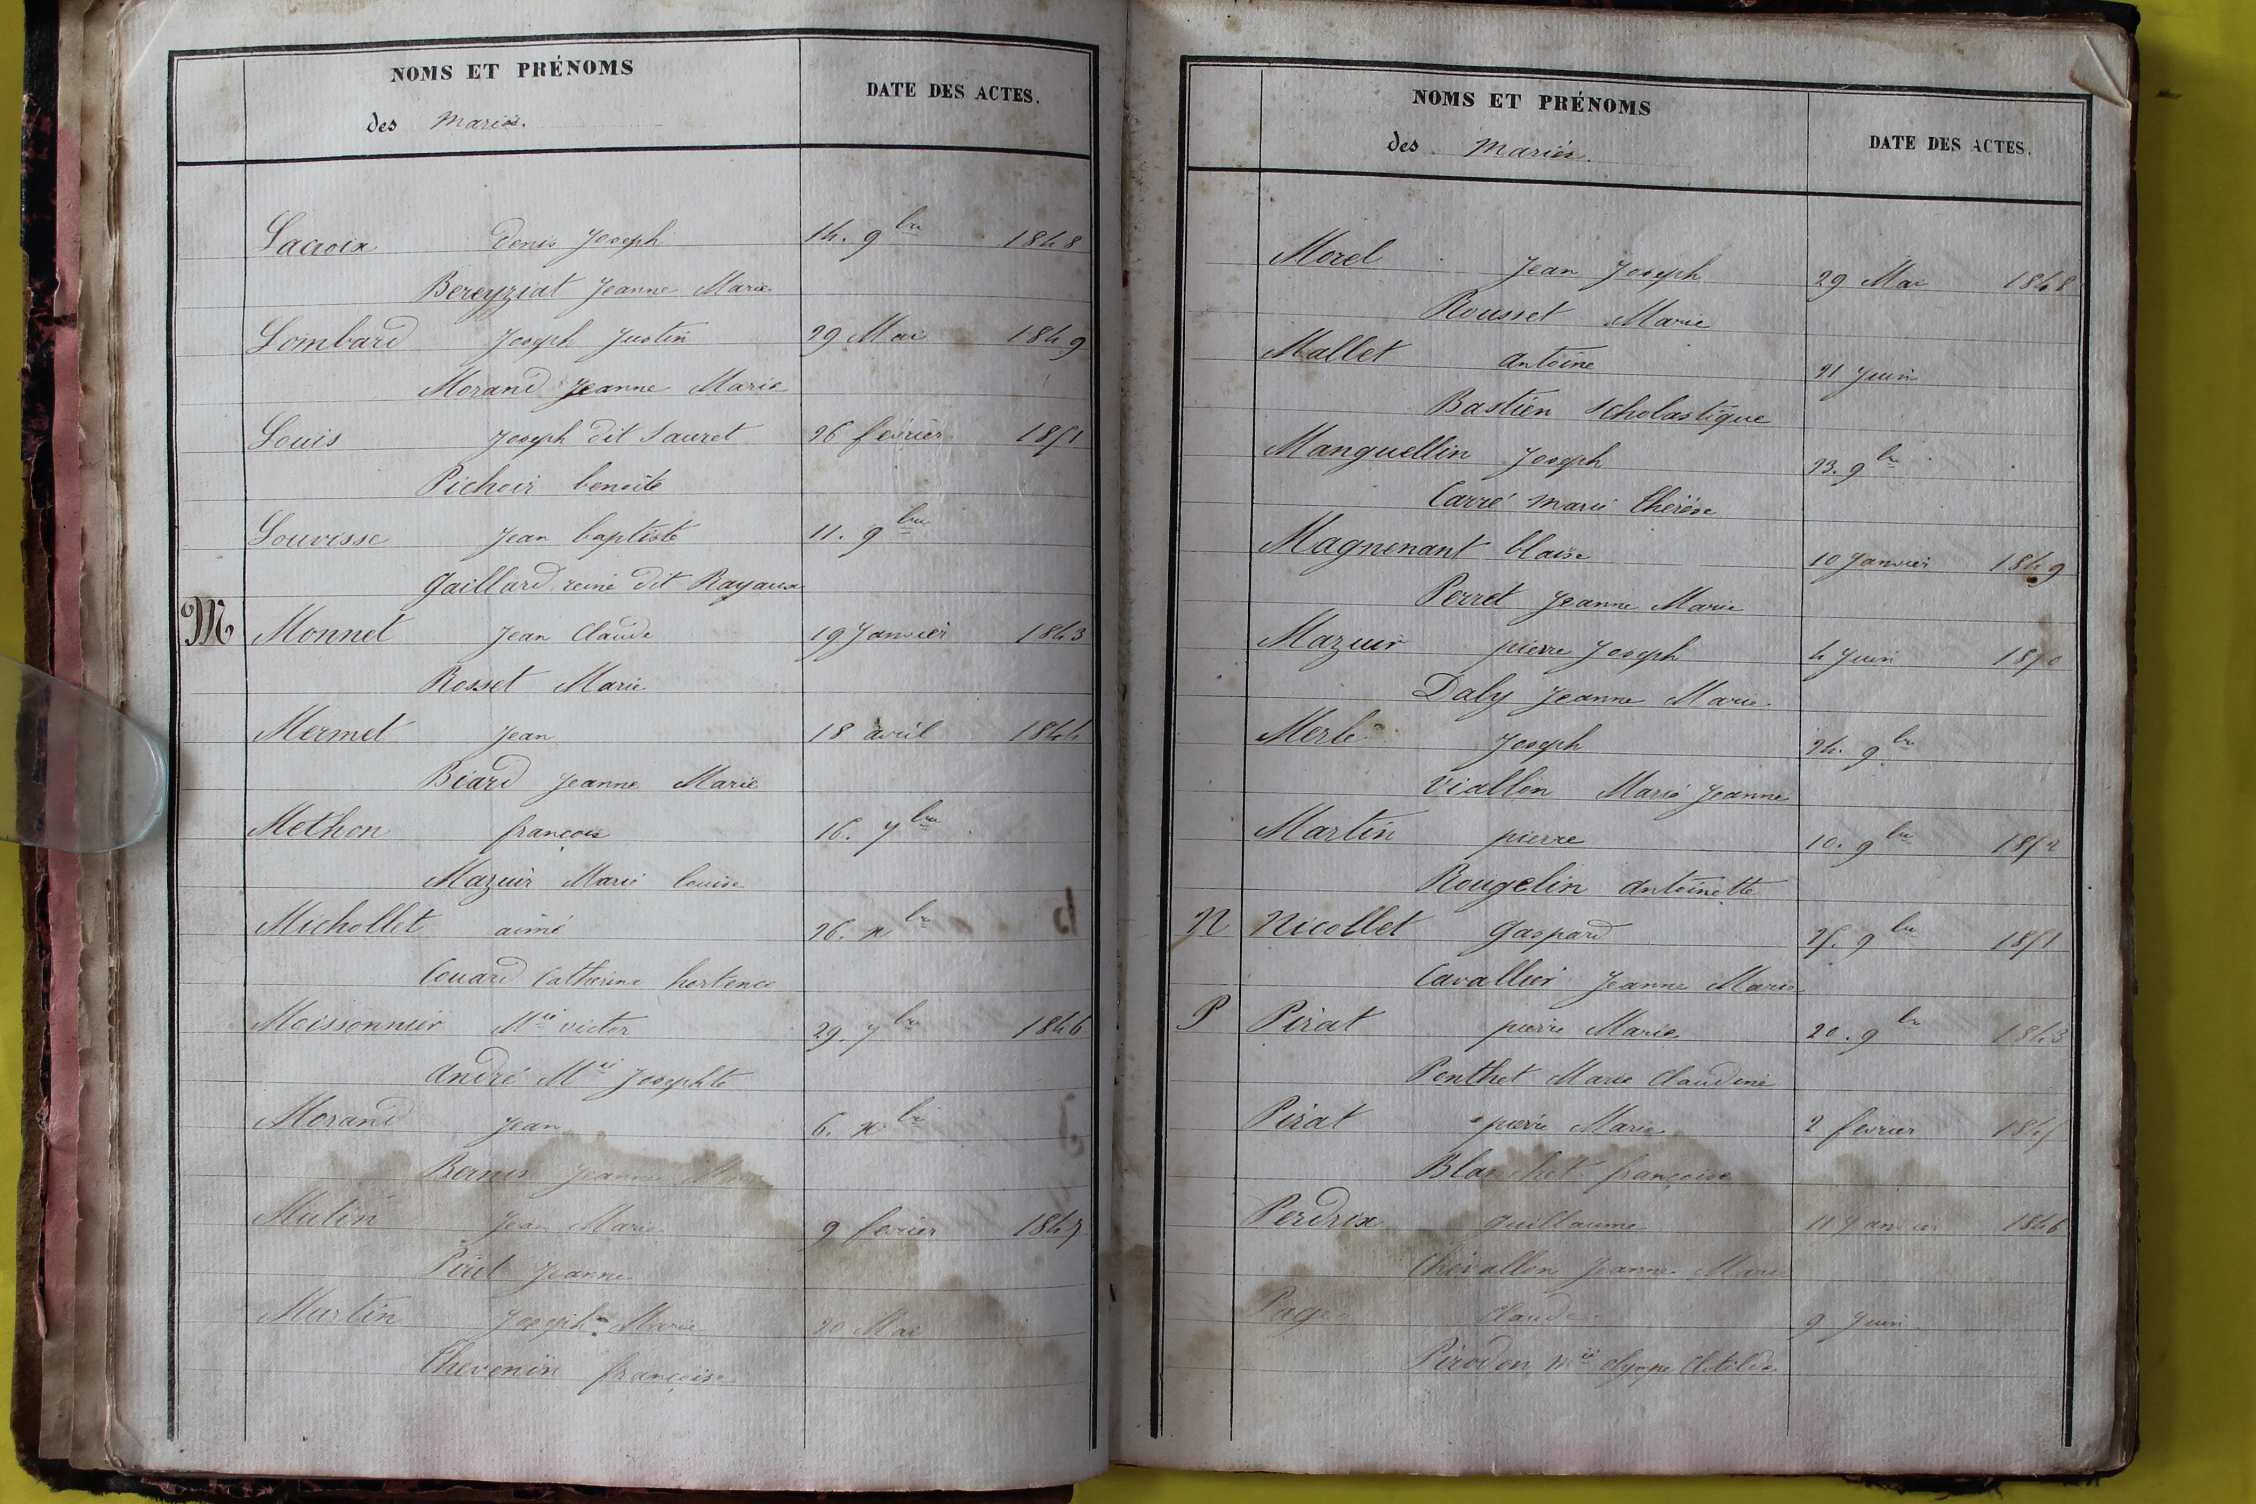 NOMS ET PRÉNOMS
des Mariés.
DATE DES ACTES.
Lacroix Denis Joseph 14. 9bre 1848
Bereyziat Jeanne Marie
Lombard Joseph Justin 29 Mai 1849
Morand Jeanne Marie
Louis Joseph dit Sauret 26 février 1851
Pichoir benoite
Louvisse Jean baptiste 11. 9bre
Gaillard reine dit Rayaux
M Monnet Jean Claude 19 Janvier 1843
Rosset Marie
Mermet Jean 18 avril 1844
Biard Jeanne Marie
Methon françois 16. 7bre
Mazuir Marie louise
Michollet aimé 26. xbre
Couard Catherine hortence
Moissonnier Mie victor 29. 7bre 1846
André Mie Josephte
Morand Jean 6. xbre
Bernin Jeanne Marie
Mutin Jean Marie 9 fevrier 1847
Piret Jeanne
Martin Joseph Marie 20 Mai
Thevenin françoise
NOMS ET PRÉNOMS
des Mariés.
DATE DES ACTES.
Morel Jean Joseph 29 Mai 1848
Rousset Marie
Mallet antoine 21 Juin
Bastien Scholastique
Manguellin Joseph 23. 9bre
Carré Marie Thérèse
Magnenant blaise 10 Janvier 1849
Perret Jeanne Marie
Mazuir pierre Joseph 4 Juin 1850
Daby Jeanne Marie
Merle Joseph 24. 9bre
Viallon Marie Jeanne
Martin pierre 10. 9bre 1852
Rougelin antoinette
N Nicollet Gaspard 25. 9bre 1851
Cavallier Jeanne Marie
P Pirat pierre Marie 20. 9bre 1843
Penthet Marie Claudine
Pirat pierre Marie 2 fevrier 1845
Blanchet françoise
Perdrix Guillaume 11 Janvier 1846
Chevallon Jeanne Marie
Page Claude 9 Juin
Pirodon Mie olympe Clotilde